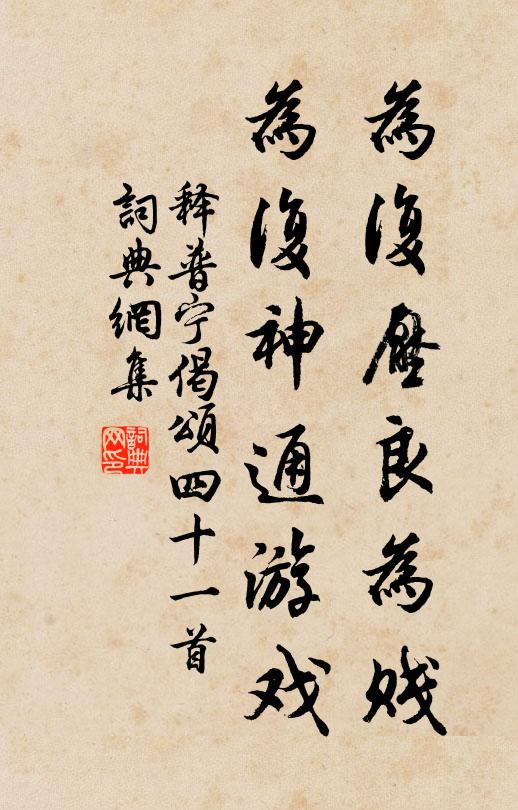 為復壓良為賤
為復神通游戏
释普宁偈頌四十一首
詞典網集
詞典网印